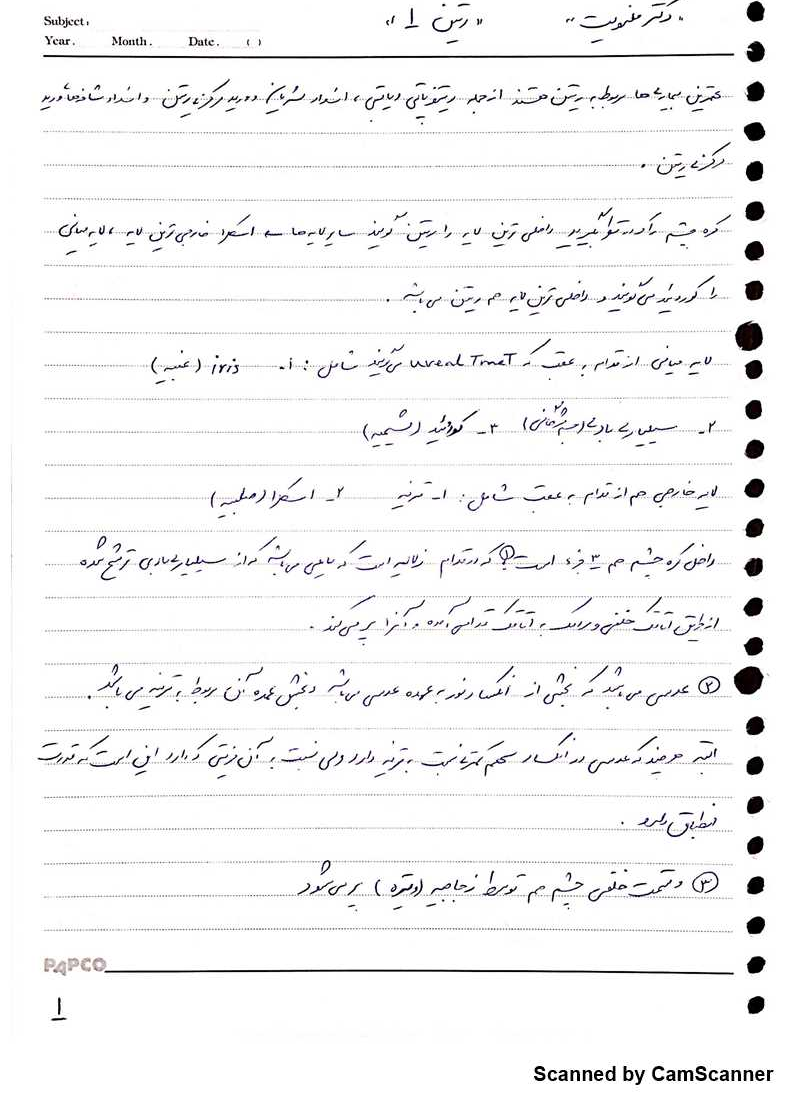 Subject:
Year. Month. Date. ( )
"دکتر معنویت" "رتین 1"
عمده‌ترین بیماری‌ها مربوط به رتین هستند از جمله رتینوپاتی دیابتی، انسداد شریان و ورید مرکزی رتین و انسداد شاخه‌ای ورید
مرکزی رتین.
کره چشم را که در نظر بگیرید داخلی ترین لایه را رتین گویند سایر لایه ها → اسکلرا خارجی ترین لایه، لایه میانی
را کوروئید می گویند و داخلی ترین لایه هم رتین می باشد.
لایه میانی از قدام به عقب که uveal Tract می گویند شامل: 1- iris (عنبیه)
2- سیلیاری بادی (جسم مژگانی) 3- کوروئید (مشیمیه)
لایه خارجی هم از قدام به عقب شامل: 1- قرنیه 2- اسکلرا (صلبیه)
داخل کره چشم هم 3 جزء است: ① که در قدام زلالیه است که مایعی می باشد که از سیلیاری بادی ترشح شده
از طریق اتاقک خلفی و مردمک به اتاقک قدامی آمده و آنرا پر می کند.
② عدسی می باشد که بخشی از انکسار نور به عهده عدسی می باشد و بخش عمده آن مربوط به قرنیه می باشد.
البته هرچند که عدسی در انکسار سهم کمتری نسبت به قرنیه دارد ولی نسبت به آن مزیتی که دارد این است که قدرت
تطابق دارد.
③ قسمت خلفی چشم هم توسط زجاجیه (ویتره) پر می شود
PAPCO
1
Scanned by CamScanner